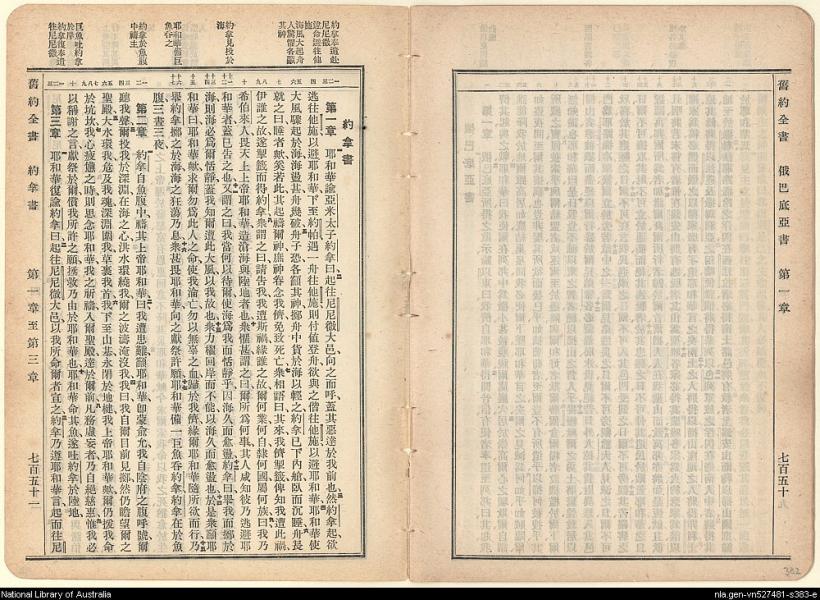 舊約全書 俄巴底亞書 第一章 七百五十
約拿書
第一章 耶和華諭亞米太子約拿曰起往尼尼微大邑向之而呼蓋其惡達於我前也然約拿起欲
逃往他施以避耶和華下至約帕遇一舟往他施則付值登舟欲與之偕往他施以避耶和華耶和華使
大風驟起於海海盪甚舟幾破舟子恐各籲其神擲舟中貨於海以輕之約拿已下內艙臥而沉睡舟長
就之曰睡者歟奚若此其起禱爾神庶神眷念我儕免致死亡衆相語曰其來我儕掣籤俾知我遭此禍
伊誰之故遂掣籤而得約拿衆謂之曰請告我我遭斯禍緣誰之故爾何業何自隸何國屬何族曰我乃
希伯來人畏天上上帝耶和華造滄海與陸地者也衆懼甚謂之曰爾所爲何事其人咸知彼乃逃避耶
和華者蓋已告之也又謂之曰我當何以待爾使海爲我而恬靜乎因海久而愈盪約拿曰舉我而擲於
海則海必爲爾恬靜蓋我知爾遭此大風以我故也衆力櫂回岸而不能以海久而愈盪也於是衆籲耶
和華曰耶和華歟求爾勿爲此人之命使我淪亡勿以無辜之血歸於我儕緣爾耶和華隨所欲而行乃
舉約拿擲之於海海之狂蕩乃息衆甚畏耶和華向之獻祭許願耶和華備一巨魚吞約拿約拿在於魚
腹三晝三夜
第二章 約拿自魚腹中禱其上帝耶和華曰我遭患難籲耶和華卽蒙兪允我自陰府之腹呼號爾
聽我聲爾投我於深淵在海之心洪水環繞我爾之波濤淹沒我我曰我自爾目前見擲然仍瞻望爾之
聖殿大水環我危及我魂深淵圍我草裹我首我下至山基永閉於地楗我上帝耶和華歟爾仍援我命
於坑坎我心疲憊之時則思念耶和華我之祈禱入爾聖殿達於爾前凡務虛妄者乃自絕慈惠惟我必
以稱謝之言獻祭於爾償我所許之願拯救乃由於耶和華也耶和華命其魚遂吐約拿於陸地
第三章 耶和華復諭約拿曰起往尼尼微大邑以我所命爾者宣之約拿乃遵耶和華起而往尼
舊約全書 約拿書 第一章至第三章 七百五十一
約拿奉遣赴
尼尼微
違命避往他
施
海風大起舟
人驚惶各籲
其神
約拿見投於
海
耶和華備巨
魚吞之
約拿於魚腹
中禱主
巨魚吐約拿
於岸
約拿復奉遣
往尼尼微
National Library of Australia
nla.gen-vn527481-s383-e